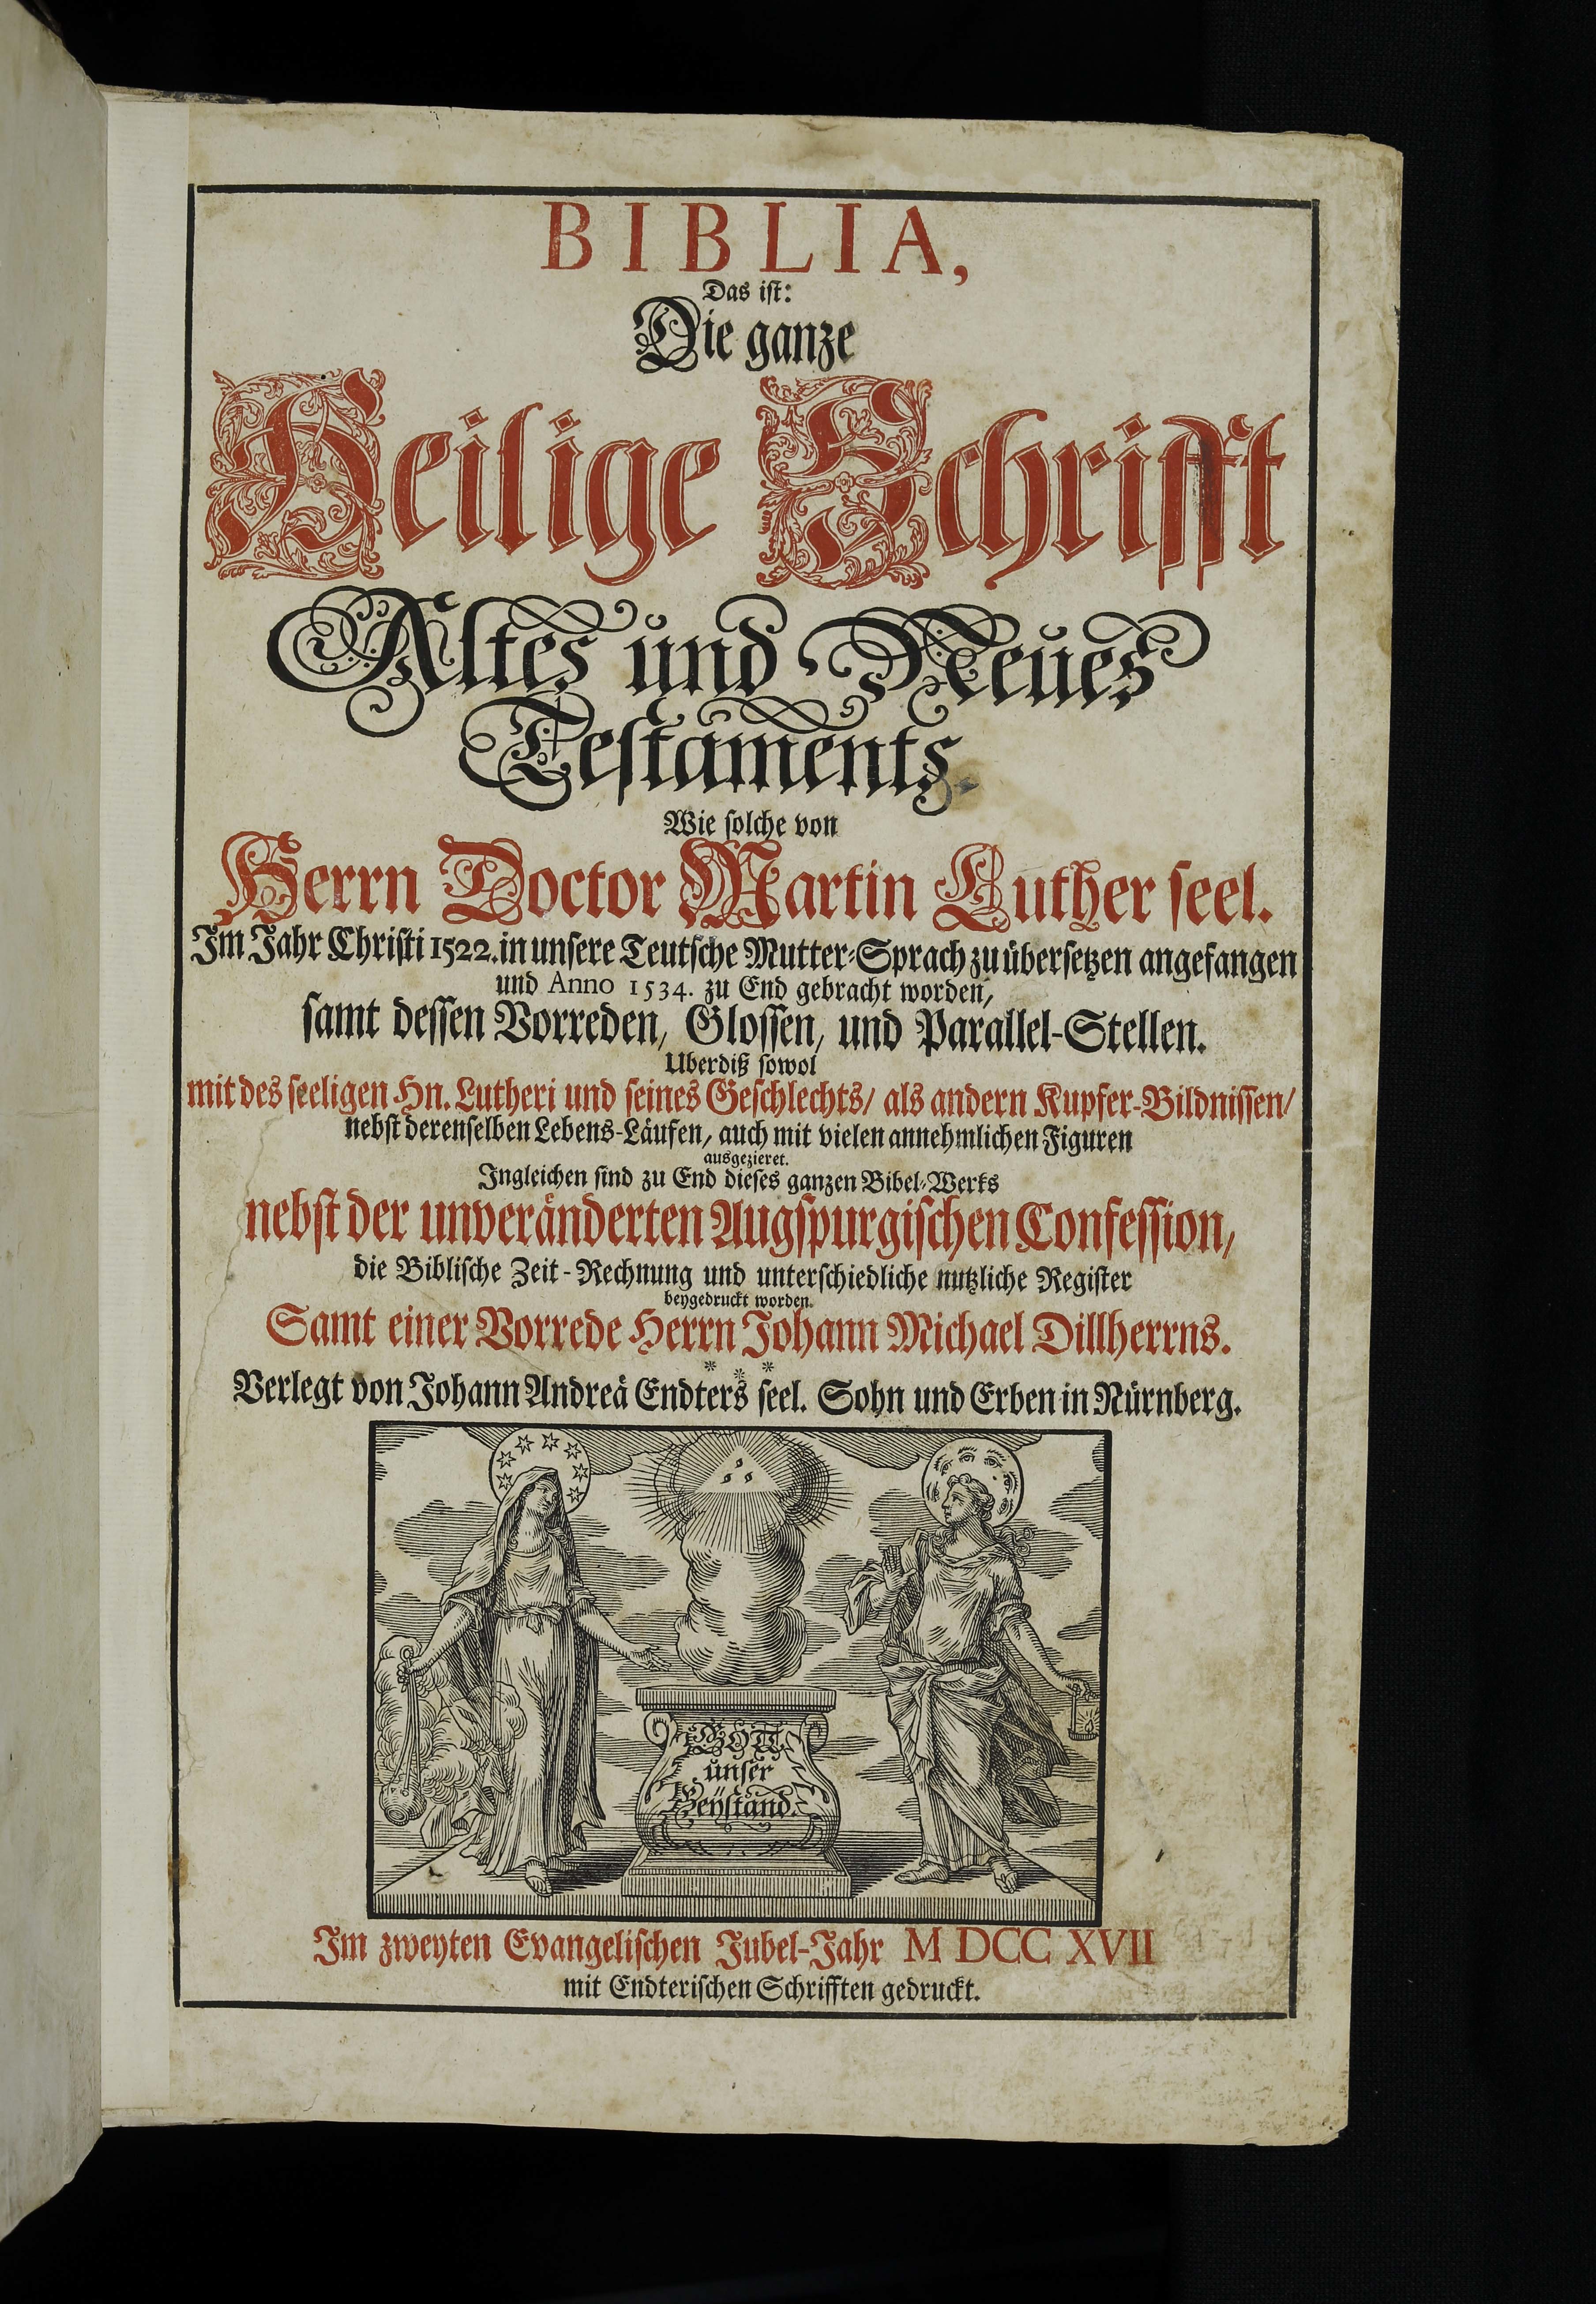 BIBLIA,
Das ist:
Die ganze
Heilige Schrifft
Altes und Neues
Testaments.
Wie solche von
Herrn Doctor Martin Luther seel.
Im Jahr Christi 1522. in unsere Teutsche Mutter-Sprach zu übersetzen angefangen
und Anno 1534. zu End gebracht worden,
samt dessen Vorreden, Glossen, und Parallel-Stellen.
Uberdiß sowol
mit des seeligen Hn. Lutheri und seines Geschlechts/ als andern Kupfer-Bildnissen/
nebst derenselben Lebens-Läufen, auch mit vielen annehmlichen Figuren
ausgezieret.
Ingleichen sind zu End dieses ganzen Bibel-Werks
nebst der unveränderten Augspurgischen Confession,
die Biblische Zeit-Rechnung und unterschiedliche nutzliche Register
beygedruckt worden.
Samt einer Vorrede Herrn Johann Michael Dillherrns.
* * *
Verlegt von Johann Andreä Endters seel. Sohn und Erben in Nürnberg.
GOTT
unser
Beystand.
Im zweyten Evangelischen Jubel-Jahr M DCC XVII
mit Endterischen Schrifften gedruckt.